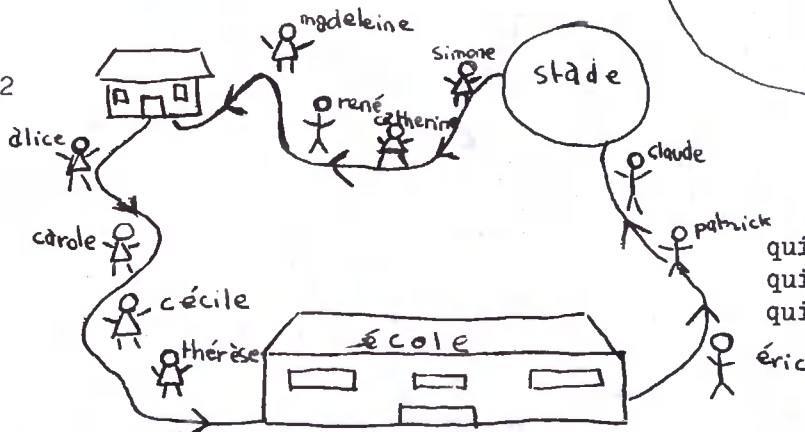 madeleine
simone
stade
2
rené
catherine
alice
claude
carole
patrick
qui
qui
qui
cécile
école
thérèse
éric